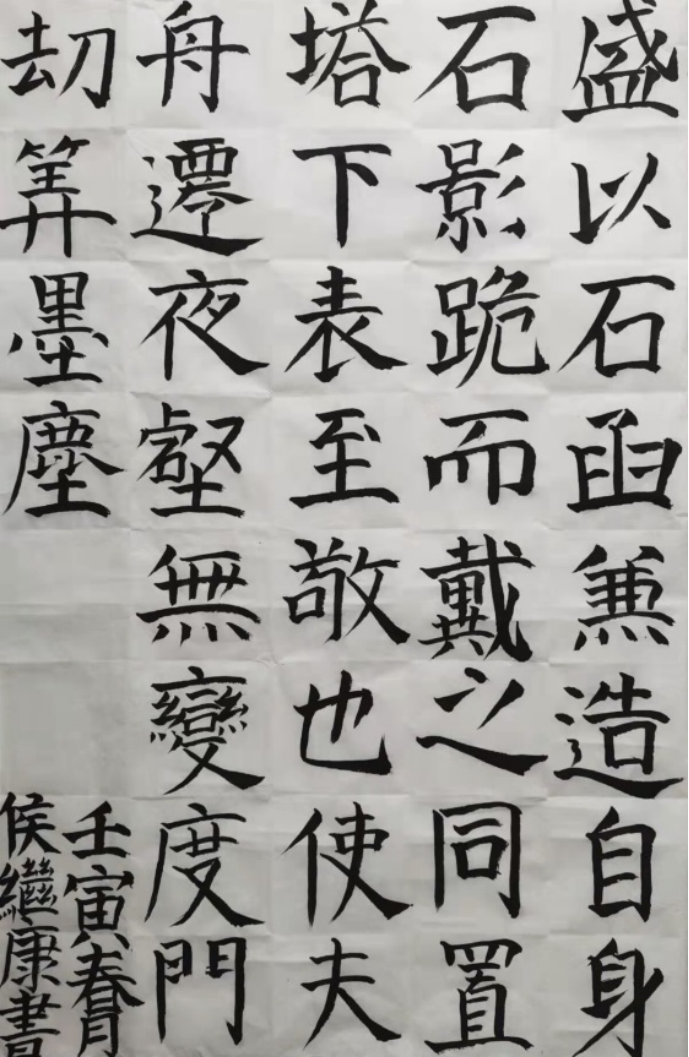 盛以石函兼造自身
石影跪而戴之同置
塔下表至敬也使夫
舟遷夜壑無變度門
刼筭墨塵
壬寅春月
侯繼康書